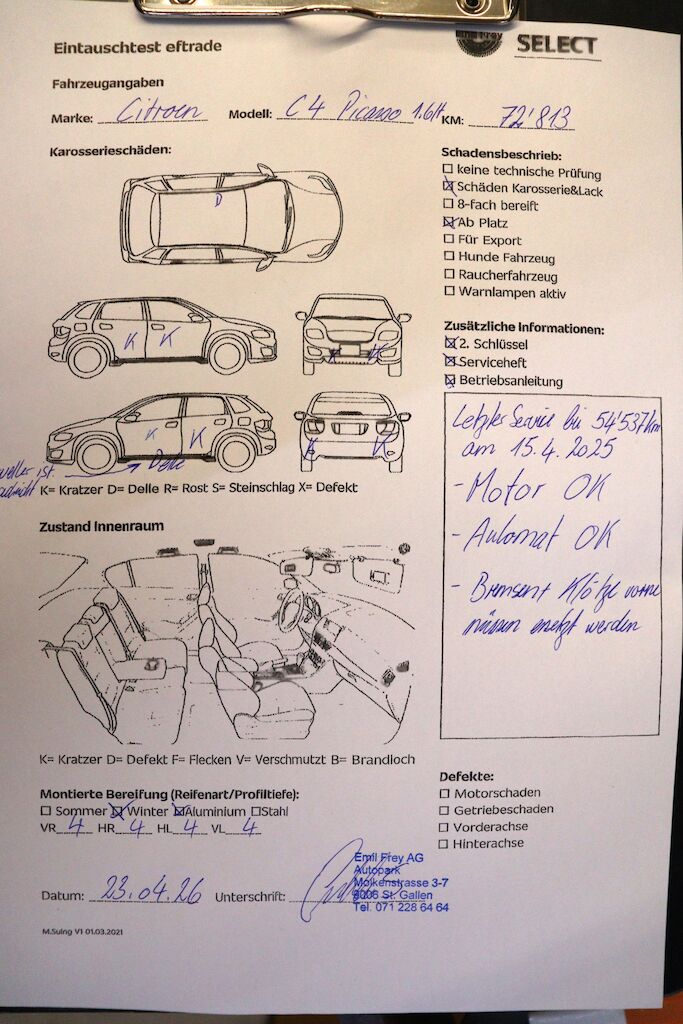 Eintauschtest eftrade
Emil Frey SELECT
Fahrzeugangaben
Marke: Citroen Modell: C4 Picasso 1.6H KM: 72'813
Karosserieschäden:
D
K K
K K
K K
K K
Delle
K= Kratzer D= Delle R= Rost S= Steinschlag X= Defekt
Schadensbeschrieb:
☐ keine technische Prüfung
☒ Schäden Karosserie&Lack
☐ 8-fach bereift
☒ Ab Platz
☐ Für Export
☐ Hunde Fahrzeug
☐ Raucherfahrzeug
☐ Warnlampen aktiv
Zusätzliche Informationen:
☒ 2. Schlüssel
☒ Serviceheft
☒ Betriebsanleitung
Letzter Service bei 54'537km
am 15.4.2025
- Motor OK
- Automat OK
- Bremsen Klötze vorne
müssen ersetzt werden
Zustand Innenraum
K= Kratzer D= Defekt F= Flecken V= Verschmutzt B= Brandloch
Montierte Bereifung (Reifenart/Profiltiefe):
☐ Sommer ☒ Winter ☒ Aluminium ☐ Stahl
VR 4 HR 4 HL 4 VL 4
Defekte:
☐ Motorschaden
☐ Getriebeschaden
☐ Vorderachse
☐ Hinterachse
Datum: 23.04.26 Unterschrift:
Emil Frey AG
Autopark
Molkenstrasse 3-7
9006 St. Gallen
Tel. 071 228 64 64
M.Suing V1 01.03.2021